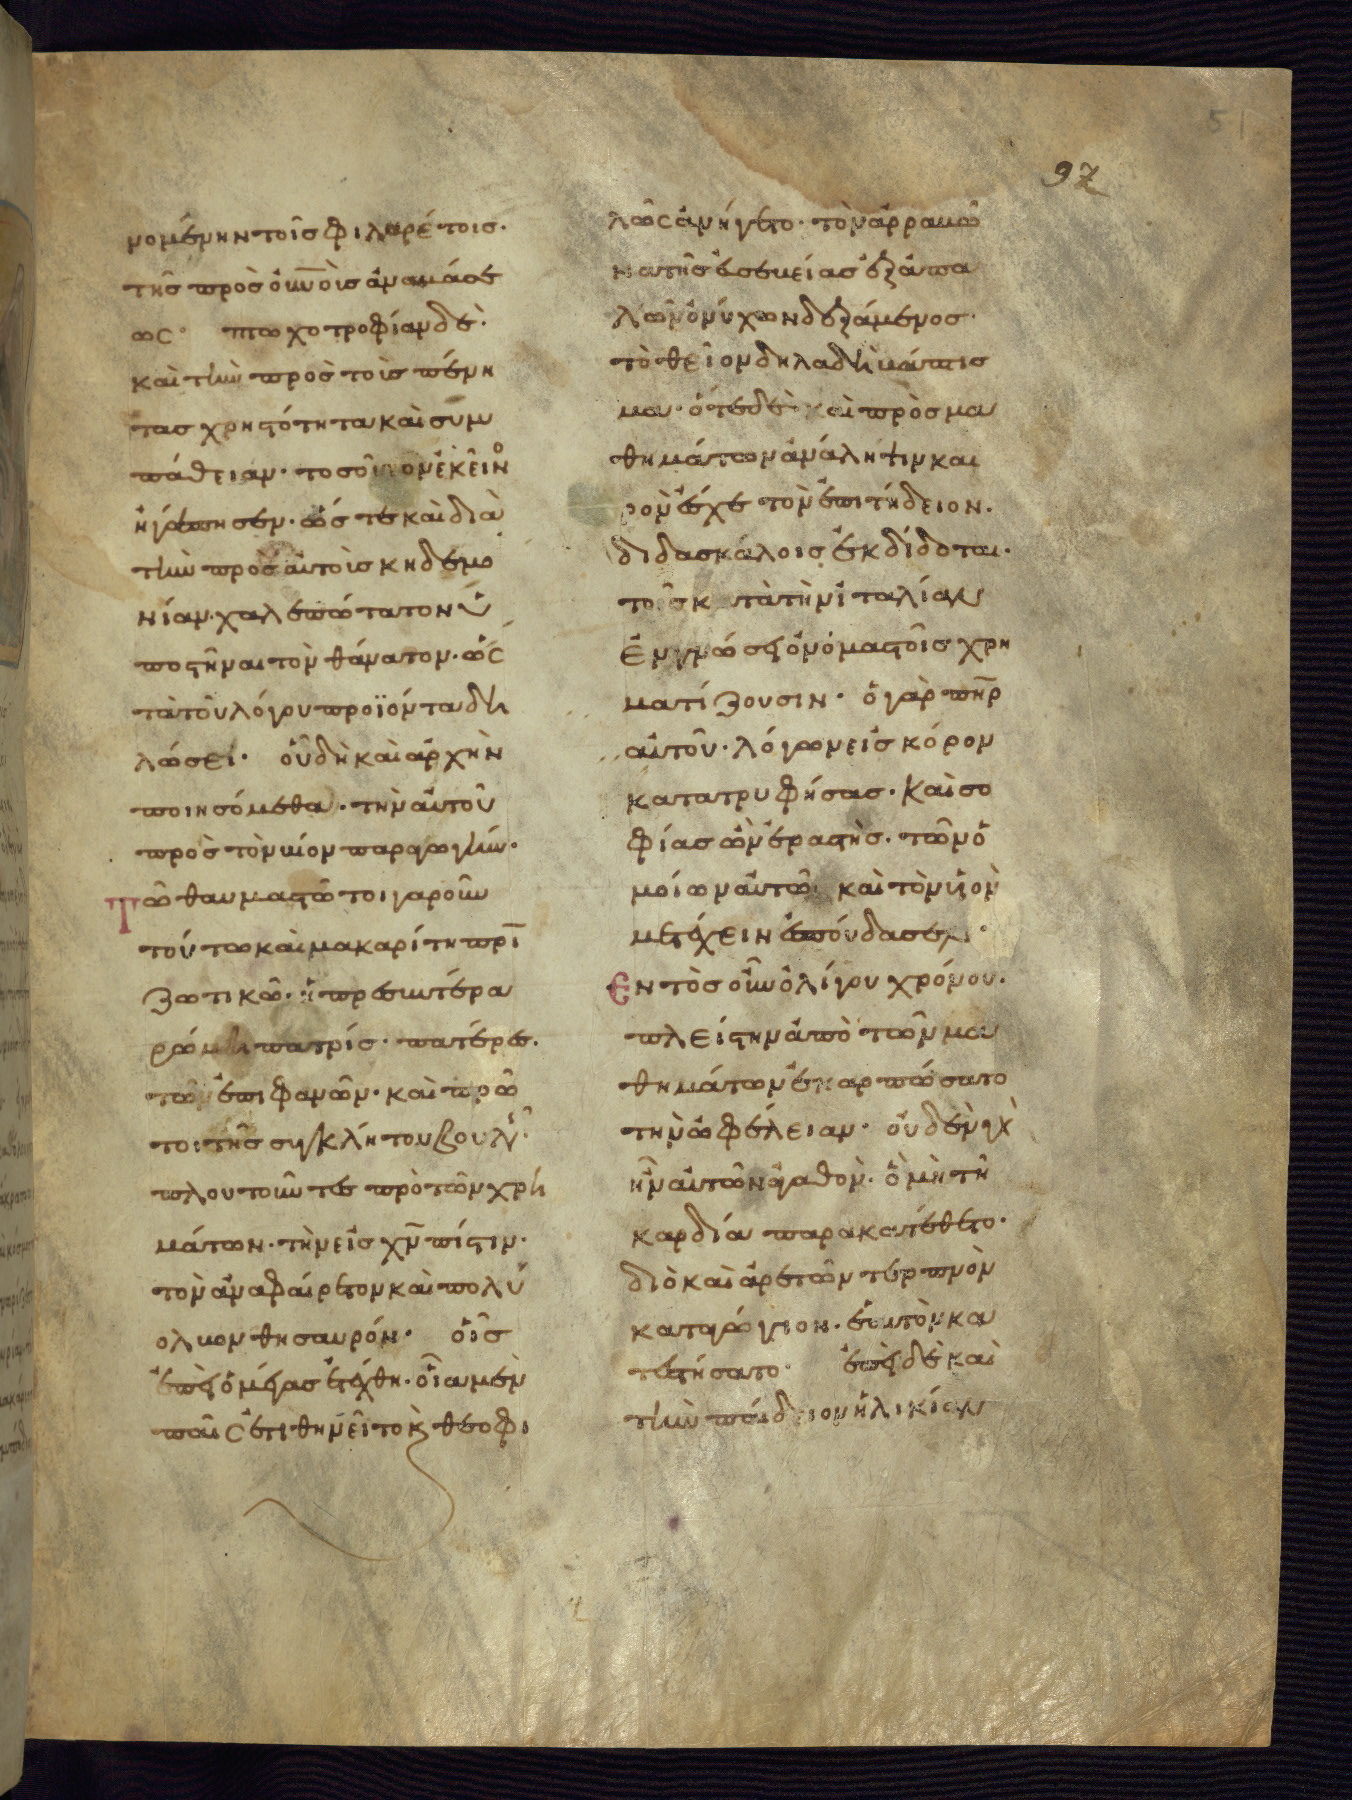 51
97
νομένην τοῖς φιλαρέτοις·
τῆς πρὸς οὐνοὺς ἀναβάσε
ως· πτωχοτροφίαν δὲ·
καὶ τὴν πρὸς τοὺς πένη
τας χρηστότητα καὶ συμ
πάθειαν· τοσοῦτον ἐκεῖνο
ἠγάπησεν· ὥστε καὶ διὰ
τὴν πρὸς αὐτοὺς κηδεμο
νίαν· χαλεπώτατον ὑ
ποστῆναι τὸν θάνατον· ὡς
τὰ τοῦ λόγου προϊόντα δη
λώσει· οὗ δὴ καὶ ἀρχὴν
ποιησόμεθα· τὴν αὐτοῦ
πρὸς τὸν βίον παραγωγήν·
Τῶ θαυμαστῶ τοιγαροῦν
τούτω καὶ μακαρίτη πρι
Ζωτικῶ· ἡ πρεσβυτέρα
ῥώμη πατρίς· πατέρες
τῶν ἐπιφανῶν· καὶ πρῶ
τοι τῆς συγκλήτου βουλῆς·
πλουτοῦντες πρὸ τῶν χρη
μάτων· τὴν εἰς χν πίστιν·
τὸν ἀναφαίρετον καὶ πολύ
ολβον θησαυρόν· οἷς
ἐπεὶ ὁ μέγας ἐτέχθη· οἷα μὲν
παῖς ἐτιθηνεῖτο κ θεοφι
λῶς ἀνήγετο· τὸν ἀρραβῶ
να τῆς εὐσεβείας ἐξ ἁπα
λῶν ὀνύχων δεξάμενος·
τὸ θεῖον δηλαδὴ βάπτισ
μα· ὅτε δὲ καὶ πρὸς μα
θημάτων ἀνάληψιν και
ρὸν ἔσχε τὸν ἐπιτήδειον·
διδασκάλοις ἐκδίδοται·
τοῖς κατὰ τὴν ἰταλίαν
ἐγνωσμένοις ὀνομαστοῖς χρη
ματίζουσιν· ὁ γὰρ πηρ
αὐτοῦ· λόγων εἰς κόρον
κατατρυφήσας· καὶ σο
φίας ὢν ἐραστὴς· τῶν ὁ
μοίων αὐτῶ· καὶ τὸν υἱὸν
μετέχειν ἐσπούδασεν·
Ἐντὸς οὖν ὀλίγου χρόνου·
πλείστην ἀπὸ τῶν μα
θημάτων ἐκαρπώσατο
τὴν ὠφέλειαν· οὐδὲν γὰρ
ἦν αὐτῶν ἀγαθὸν· ὃ μὴ τῆ
καρδία παρακατέθετο·
διὸ καὶ ἀρετῶν τερπνὸν
καταγώγιον· ἑαυτὸν κα
τεστήσατο· ἐπεὶ δὲ καὶ
τὴν παίδειον ἡλικίαν